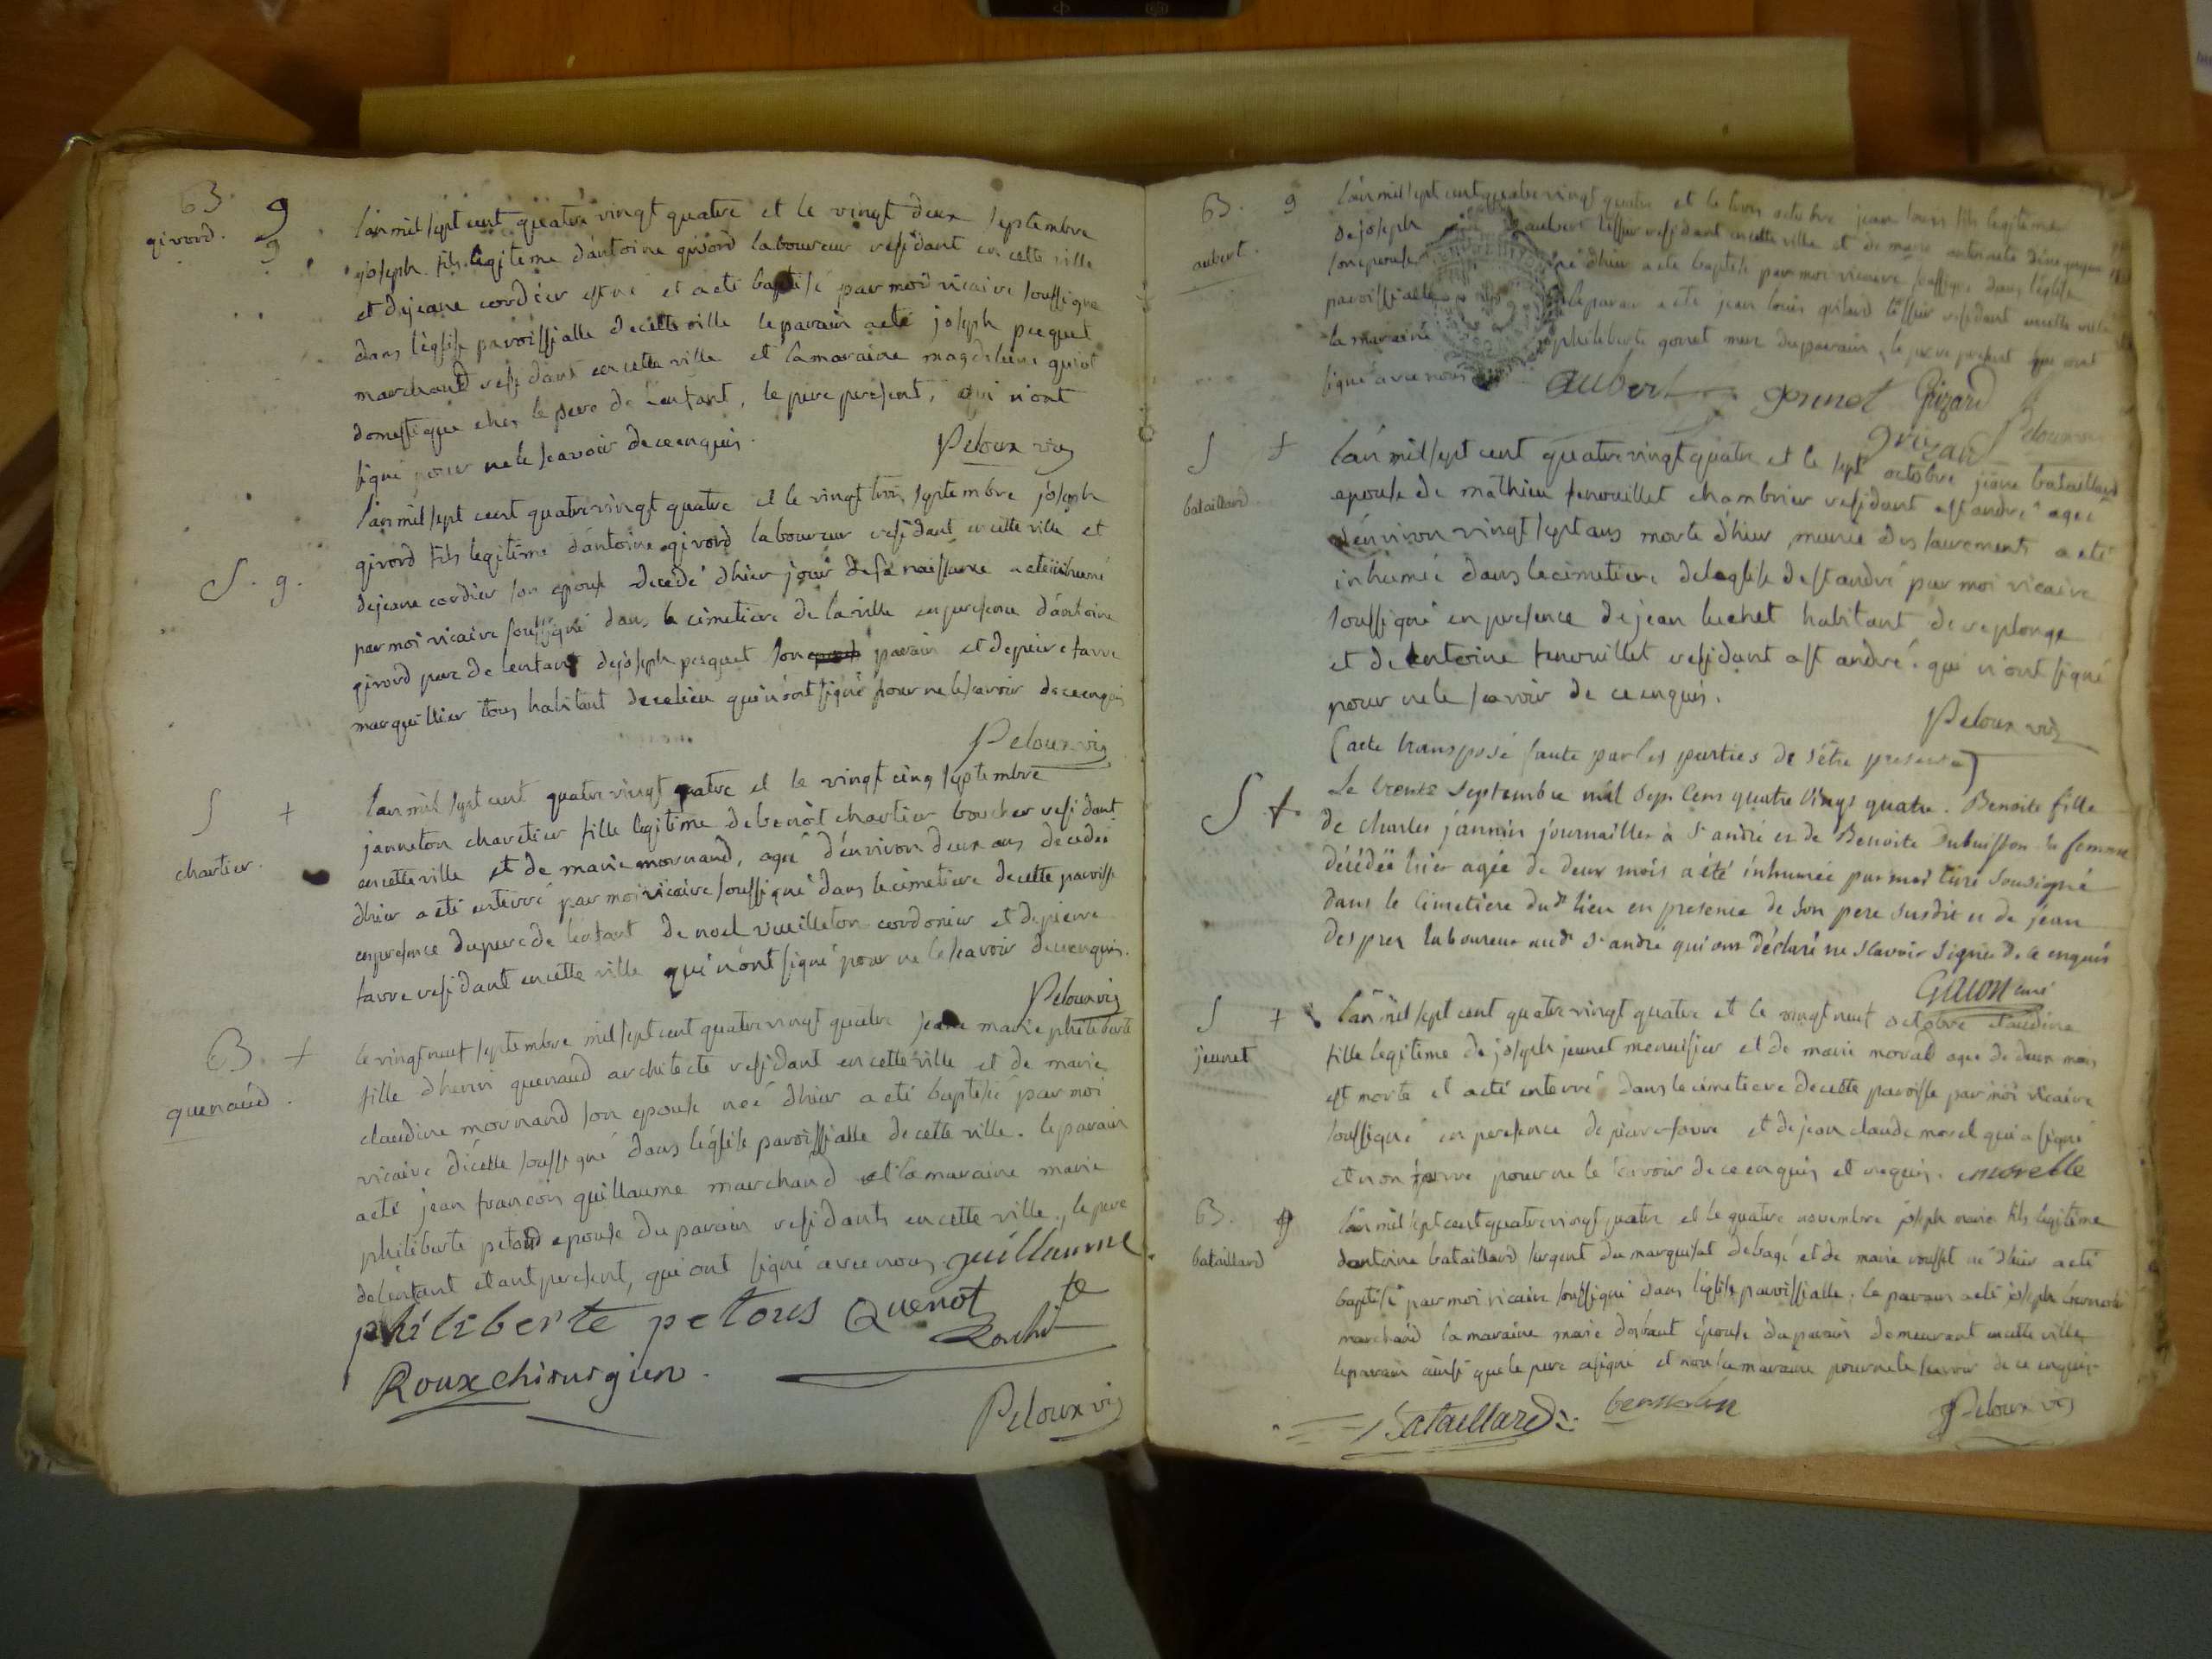 B. g
girord.
l'an mil sept cent quatre vingt quatre et le vingt deux septembre
joseph fils legiteme d'antoine girord laboureur residant en cette ville
et de jeane cordier est né et a eté baptisé par moi vicaire soussigné
dans léglise paroissialle de cette ville le parain a eté joseph pequet
marchand residant en cette ville et la maraine magdeleine guiot
domestique ches le pere de lenfant, le pere present, qui n'ont
signé pour ne le scavoir de ce enquis.
Peloux vic
S. g.
l'an mil sept cent quatre vingt quatre et le vingt trois septembre joseph
girord fils legitime d'antoine girord laboureur residant en cette ville et
de jeane cordier son epouse decedé d'hier jour de sa naissance a eté inhumé
par moi vicaire soussigné dans le cimetiere de la ville en presence d'antoine
girord pere de lenfant de joseph pesquet son parain et de pierre favre
marguillier tous habitant de ce lieu qui n'ont signé pour ne le scavoir de ce enquis
Peloux vic
S +
chartier.
l'an mil sept cent quatre vingt quatre et le vingt cinq septembre
janneton charetier fille legitime de benoit chartier boucher residant
en cette ville et de marie mornand, agée d'environ deux ans decedée
d'hier a eté enterré par moi vicaire soussigné dans le cimetiere de cette paroisse
en presence du pere de lenfant de noel vuilleton cordonier et de pierre
favre residant en cette ville qui n'ont signé pour ne le scavoir de ce enquis.
Peloux vic
B. +
quenaud.
le vingt neuf septembre mil sept cent quatre vingt quatre jeane marie philiberte
fille d'henri quenaud architecte residant en cette ville et de marie
claudine mornand son epouse née d'hier a eté baptisé par moi
vicaire d'icelle soussigné dans léglise paroissialle de cette ville. le parain
a eté jean francois guillaume marchand et la maraine marie
philiberte petoud epouse du parain residants en cette ville, le pere
de lenfant etant present, qui ont signé avec nous. guillaume
philiberte petous Quenot
Roux chirurgien.
Peloux vic
B. g
aubert.
l'an mil sept cent quatre vingt quatre et le trois octobre jean louis fils legiteme
de joseph aubert tissier residant en cette ville et de marie antoinete
son epouse né d'hier a eté baptisé par moi vicaire soussigné dans léglise
paroissialle le parain a eté jean louis grisard tissier residant en cette ville
la maraine philiberte gonet mere du parain, le pere present qui ont
signé avec nous aubert Grizard
grizard Peloux vic
S +
bataillard
l'an mil sept cent quatre vingt quatre et le sept octobre jeane bataillard
epouse de mathieu fenouillet chambrier residant a st andré agée
d'environ vingt sept ans morte d'hier munie des sacrements a eté
inhumée dans le cimetiere de leglise de st andré par moi vicaire
soussigné en presence de jean luchet habitant de replonge
et de antoine fenouillet residant a st andré. qui n'ont signé
pour ne le scavoir de ce enquis.
Peloux vic
(acte transposé faute par les parties de s'étre presenté)
S +
Le trente Septembre mil Sept Cens quatre Vingt quatre. Benoite fille
de Charles jannin journaillier à St andré et de Benoite Dubuisson sa femme
décédée hier agée de deux mois a été inhumée par moi Curé Sousigné
dans le Cimetiere dud. lieu en presence de Son pere Susdit et de jean
Desprez laboureur aud. St andré qui ont déclaré ne Scavoir Signer de ce enquis
Gauon curé
S +
jeunet
l'an mil sept cent quatre vingt quatre et le vingt neuf octobre claudine
fille legiteme de joseph jeunet menuisier et de marie morad agée de deux mois
est morte et a eté enterré dans le cimetiere de cette paroisse par moi vicaire
soussigné en presence de pierre favre et de jean claude morel qui a signé
et non favre pour ne le scavoir de ce enquis et requis. morelle
B. g
bataillard
l'an mil sept cent quatre vingt quatre et le quatre novembre joseph marie fils legitime
d'antoine bataillard sergent du marquisat de bagé et de marie rousset né d'hier a eté
baptisé par moi vicaire soussigné dans léglise paroissialle. le parain a eté joseph
marchand la maraine marie epouse du parain demeurant en cette ville
le parain ainsi que le pere a signé et non la maraine pour ne le scavoir de ce enquis.
Bataillard Peloux vic